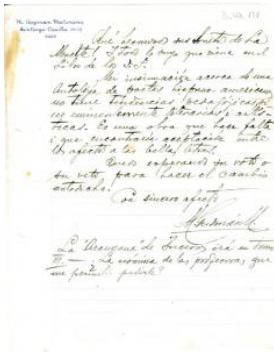 M. Guzmán Maturana
Santiago-Casilla
Qué hermosos sus Sonetos de La
Muerte! I todo lo suyo que viene en el
Libro de los J.F.
Mi insinuación acerca de una
Antolojía de poetas hispano-americanos
no tiene tendencias pedagójicas si
no eminentemente literarias i artís-
ticas. Es una obra que hace falta
i que encontraría aceptación entre
los afectos a las bellas letras.
Quedo esperando su voto o
su veto para hacer el cambio
Su sincero afecto
La "Araucana" de irá en tomo
III. — La nómina de las profesoras, que
me permití pedirle?